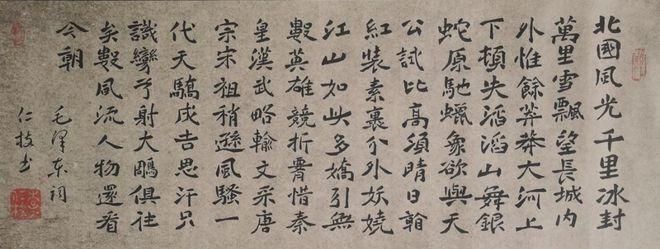 北國風光千里冰封
萬里雪飄望長城內
外惟餘莽莽大河上
下頓失滔滔山舞銀
蛇原馳蠟象欲與天
公試比高須晴日看
紅裝素裹分外妖嬈
江山如此多嬌引無
數英雄競折腰惜秦
皇漢武略輸文采唐
宗宋祖稍遜風騷一
代天驕成吉思汗只
識彎弓射大鵰俱往
矣數風流人物還看
今朝
毛澤东詞
仁技书